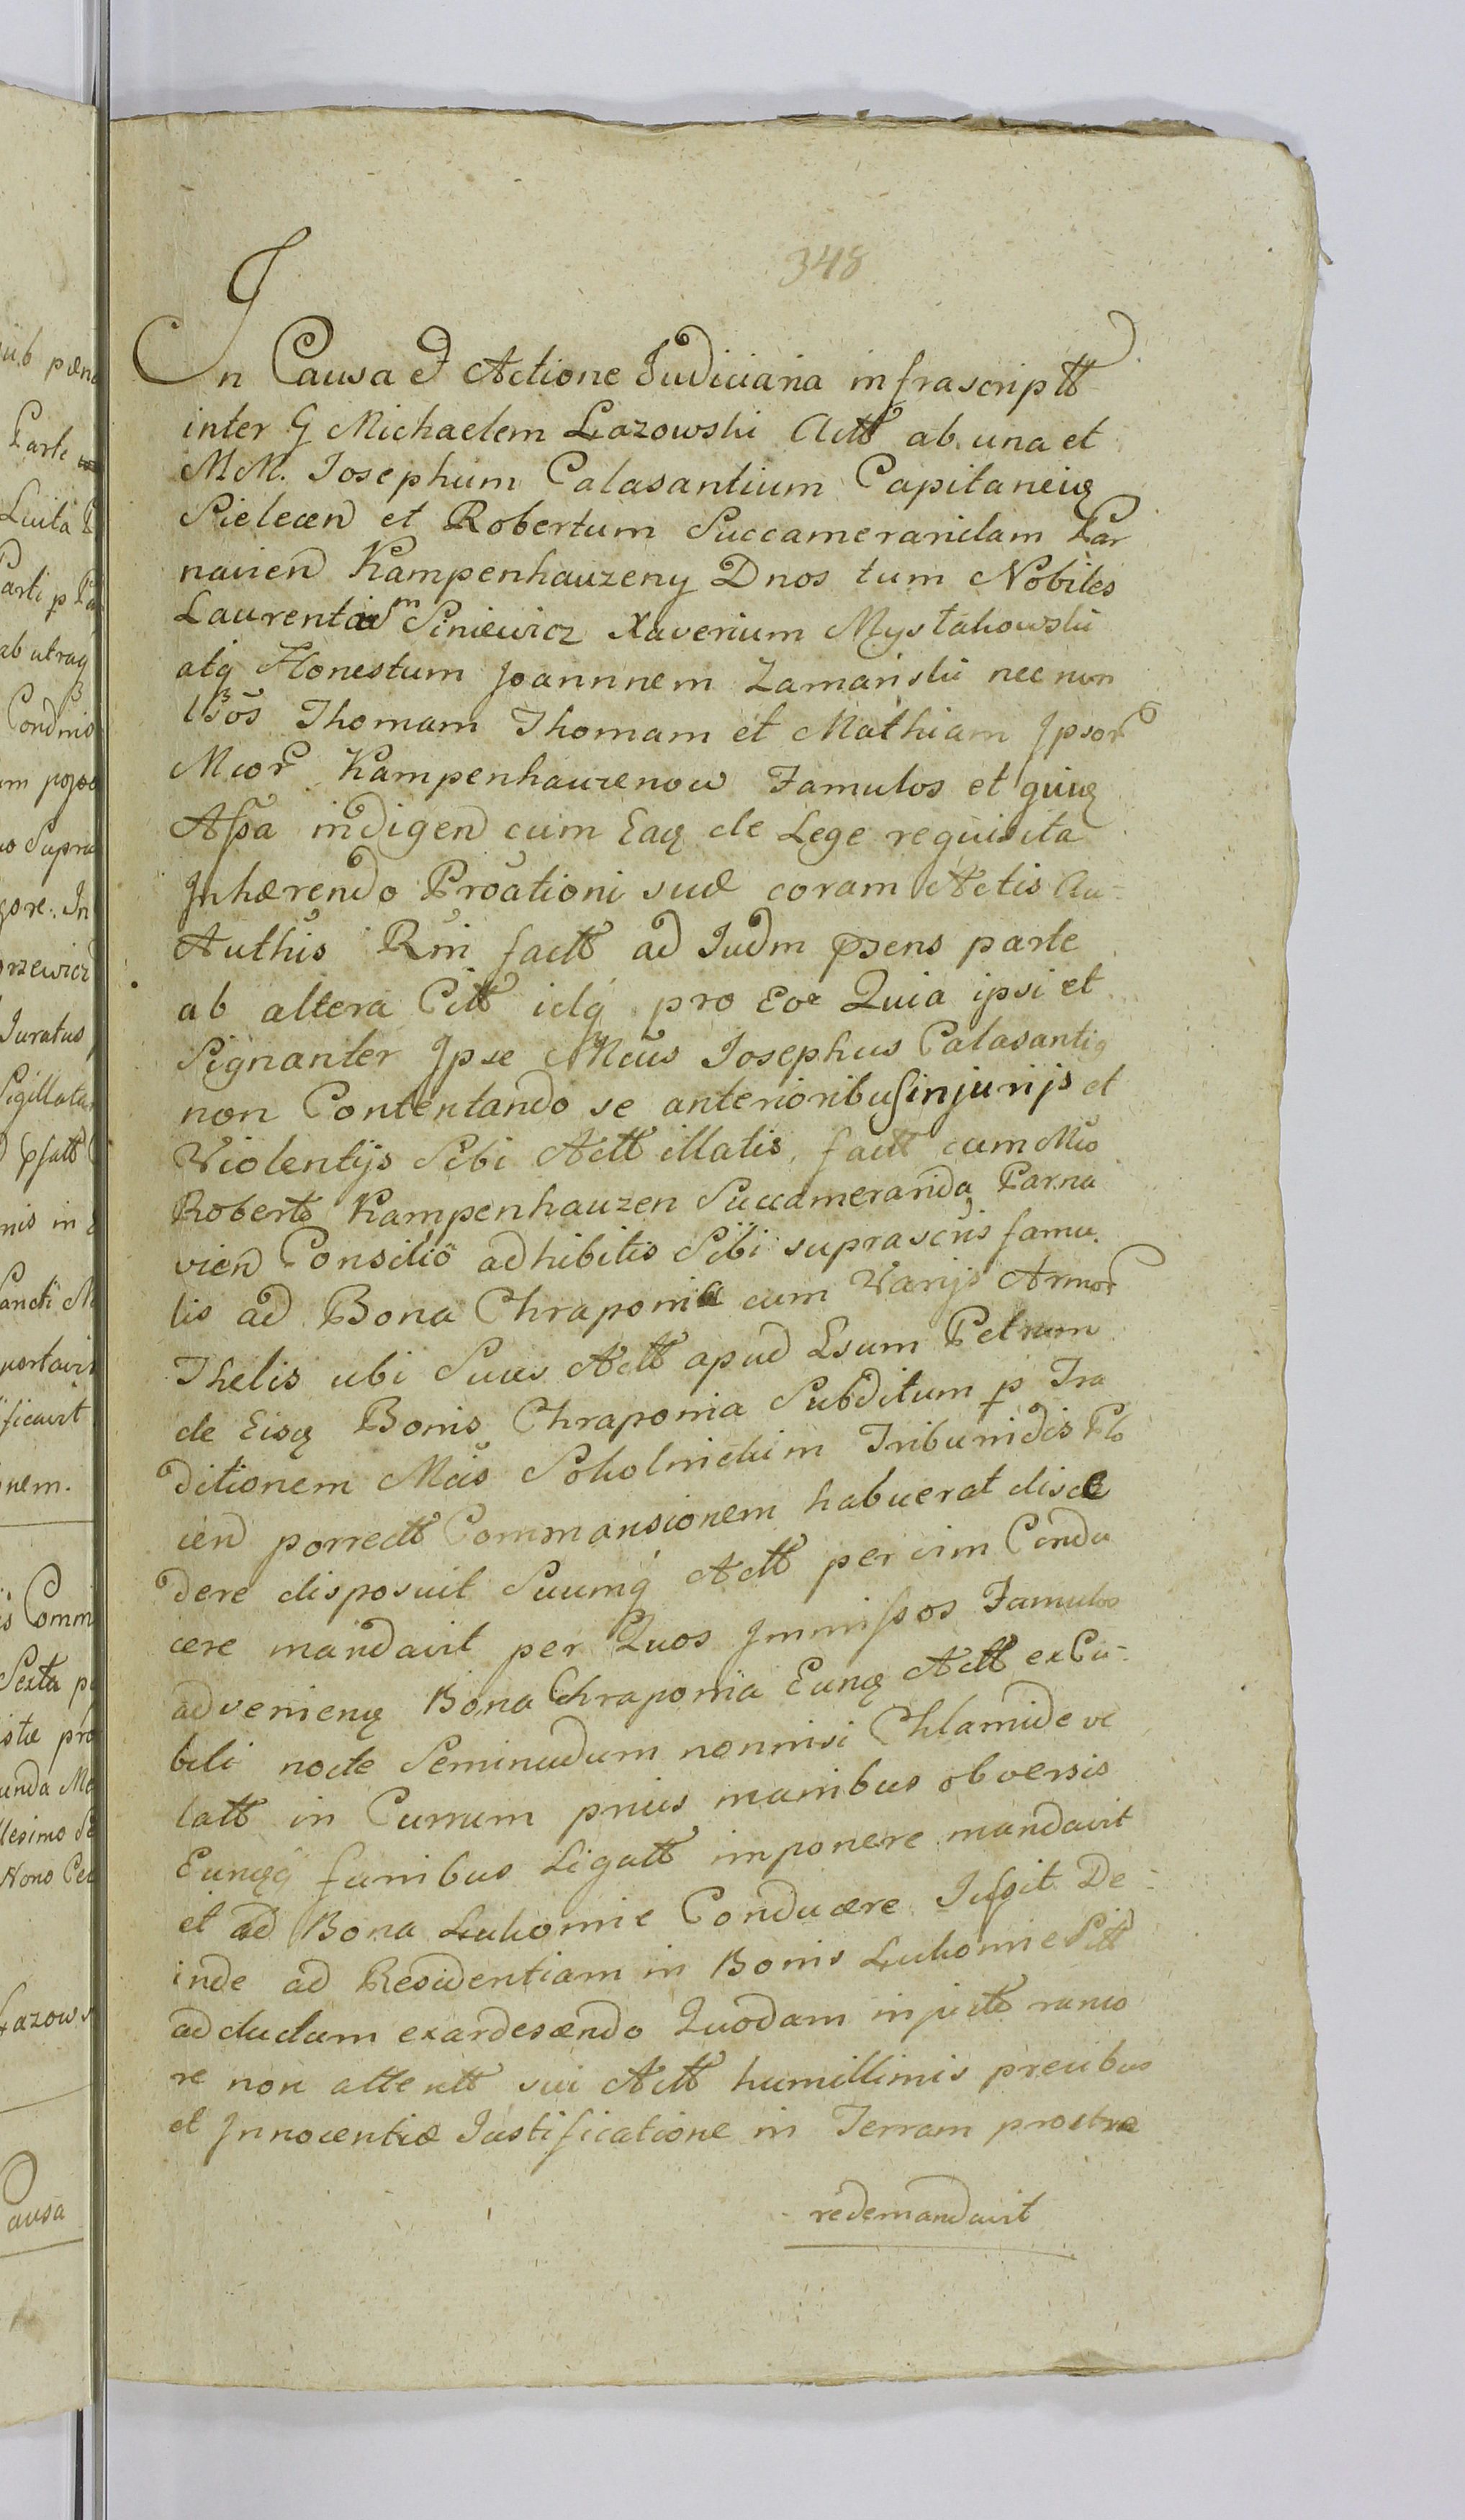 348
In Causa et Actione Judiciaria infrascriptt
inter G Michaelem Łazowski Actt ab una et
M.M. Josephum Calasantium Capitaneuq
Sielecen et Robertum Succameraridam Par
navien Kampenhauzeny Dnos tum Nobiles
Laurentium Siniewicz Xaverium Mystakowski
atq Honestum Joannnem Zamanski nec non
lbos Thomam Thomam et Mathiam Ipsor
Mcor Kampenhauzenow Famulos et quiuq
Assa indigen cum Eaq de Lege requisita
Inhærendo Proationi suæ coram Actis Au-
Authis Rni factt ad Judm psens parte
ab altera Citt idq pro Eo Quia ipsi et
Signanter Ipse Mcus Josephus Calasantiq
non Contentando se anterioribus injurijs et
Violentijs Sibi Actt illatis, factt cum Mco
Roberto Kampenhauzen Succamerarida Parna
vien Consilio adhibitis Sibi suprascris famu.
lis ad Bona Chraponia cum Varijs Armor
Thelis ubi Suus Actt apud Lsum Petrum
de Eisq Bonis Chraponia Subditum p Tra
ditionem Mcis Sokolnickim Tribunidis Plo
cen porrectt Commansionem habuerat disce
dere disposuit Suumq Actt per vim Condu
cere mandavit per Quos Immissos Famulos
advenienq Bona Chraponia Eunq Actt ex Cu-
bili nocte Seminudum nonnisi Chlamide ve
latt in Currum prius manibus obversis
Eunqq funibus Ligatt imponere mandavit
et ad Bona Łukomie Conducere Jussit De-
inde ad Residentiam in Bonis Łukomie Sitt
adductum exardescendo Quodam injusto ranco
re non attentt sui Actt humillimis precibus
et Innocentiæ Justificatione in Terram prostra
redemandavit